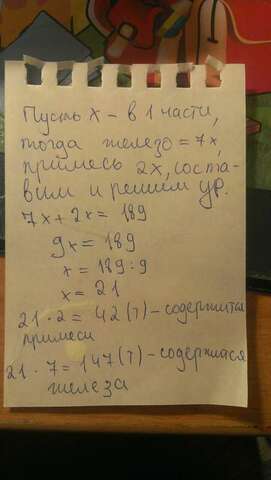 Пусть х - в 1 части,
тогда железо = 7х,
примесь 2х, соста-
вим и решим ур.
7х + 2х = 189
9х = 189
х = 189 : 9
х = 21
21 · 2 = 42 (т) - содержится
примеси
21 · 7 = 147 (т) - содержится
железа